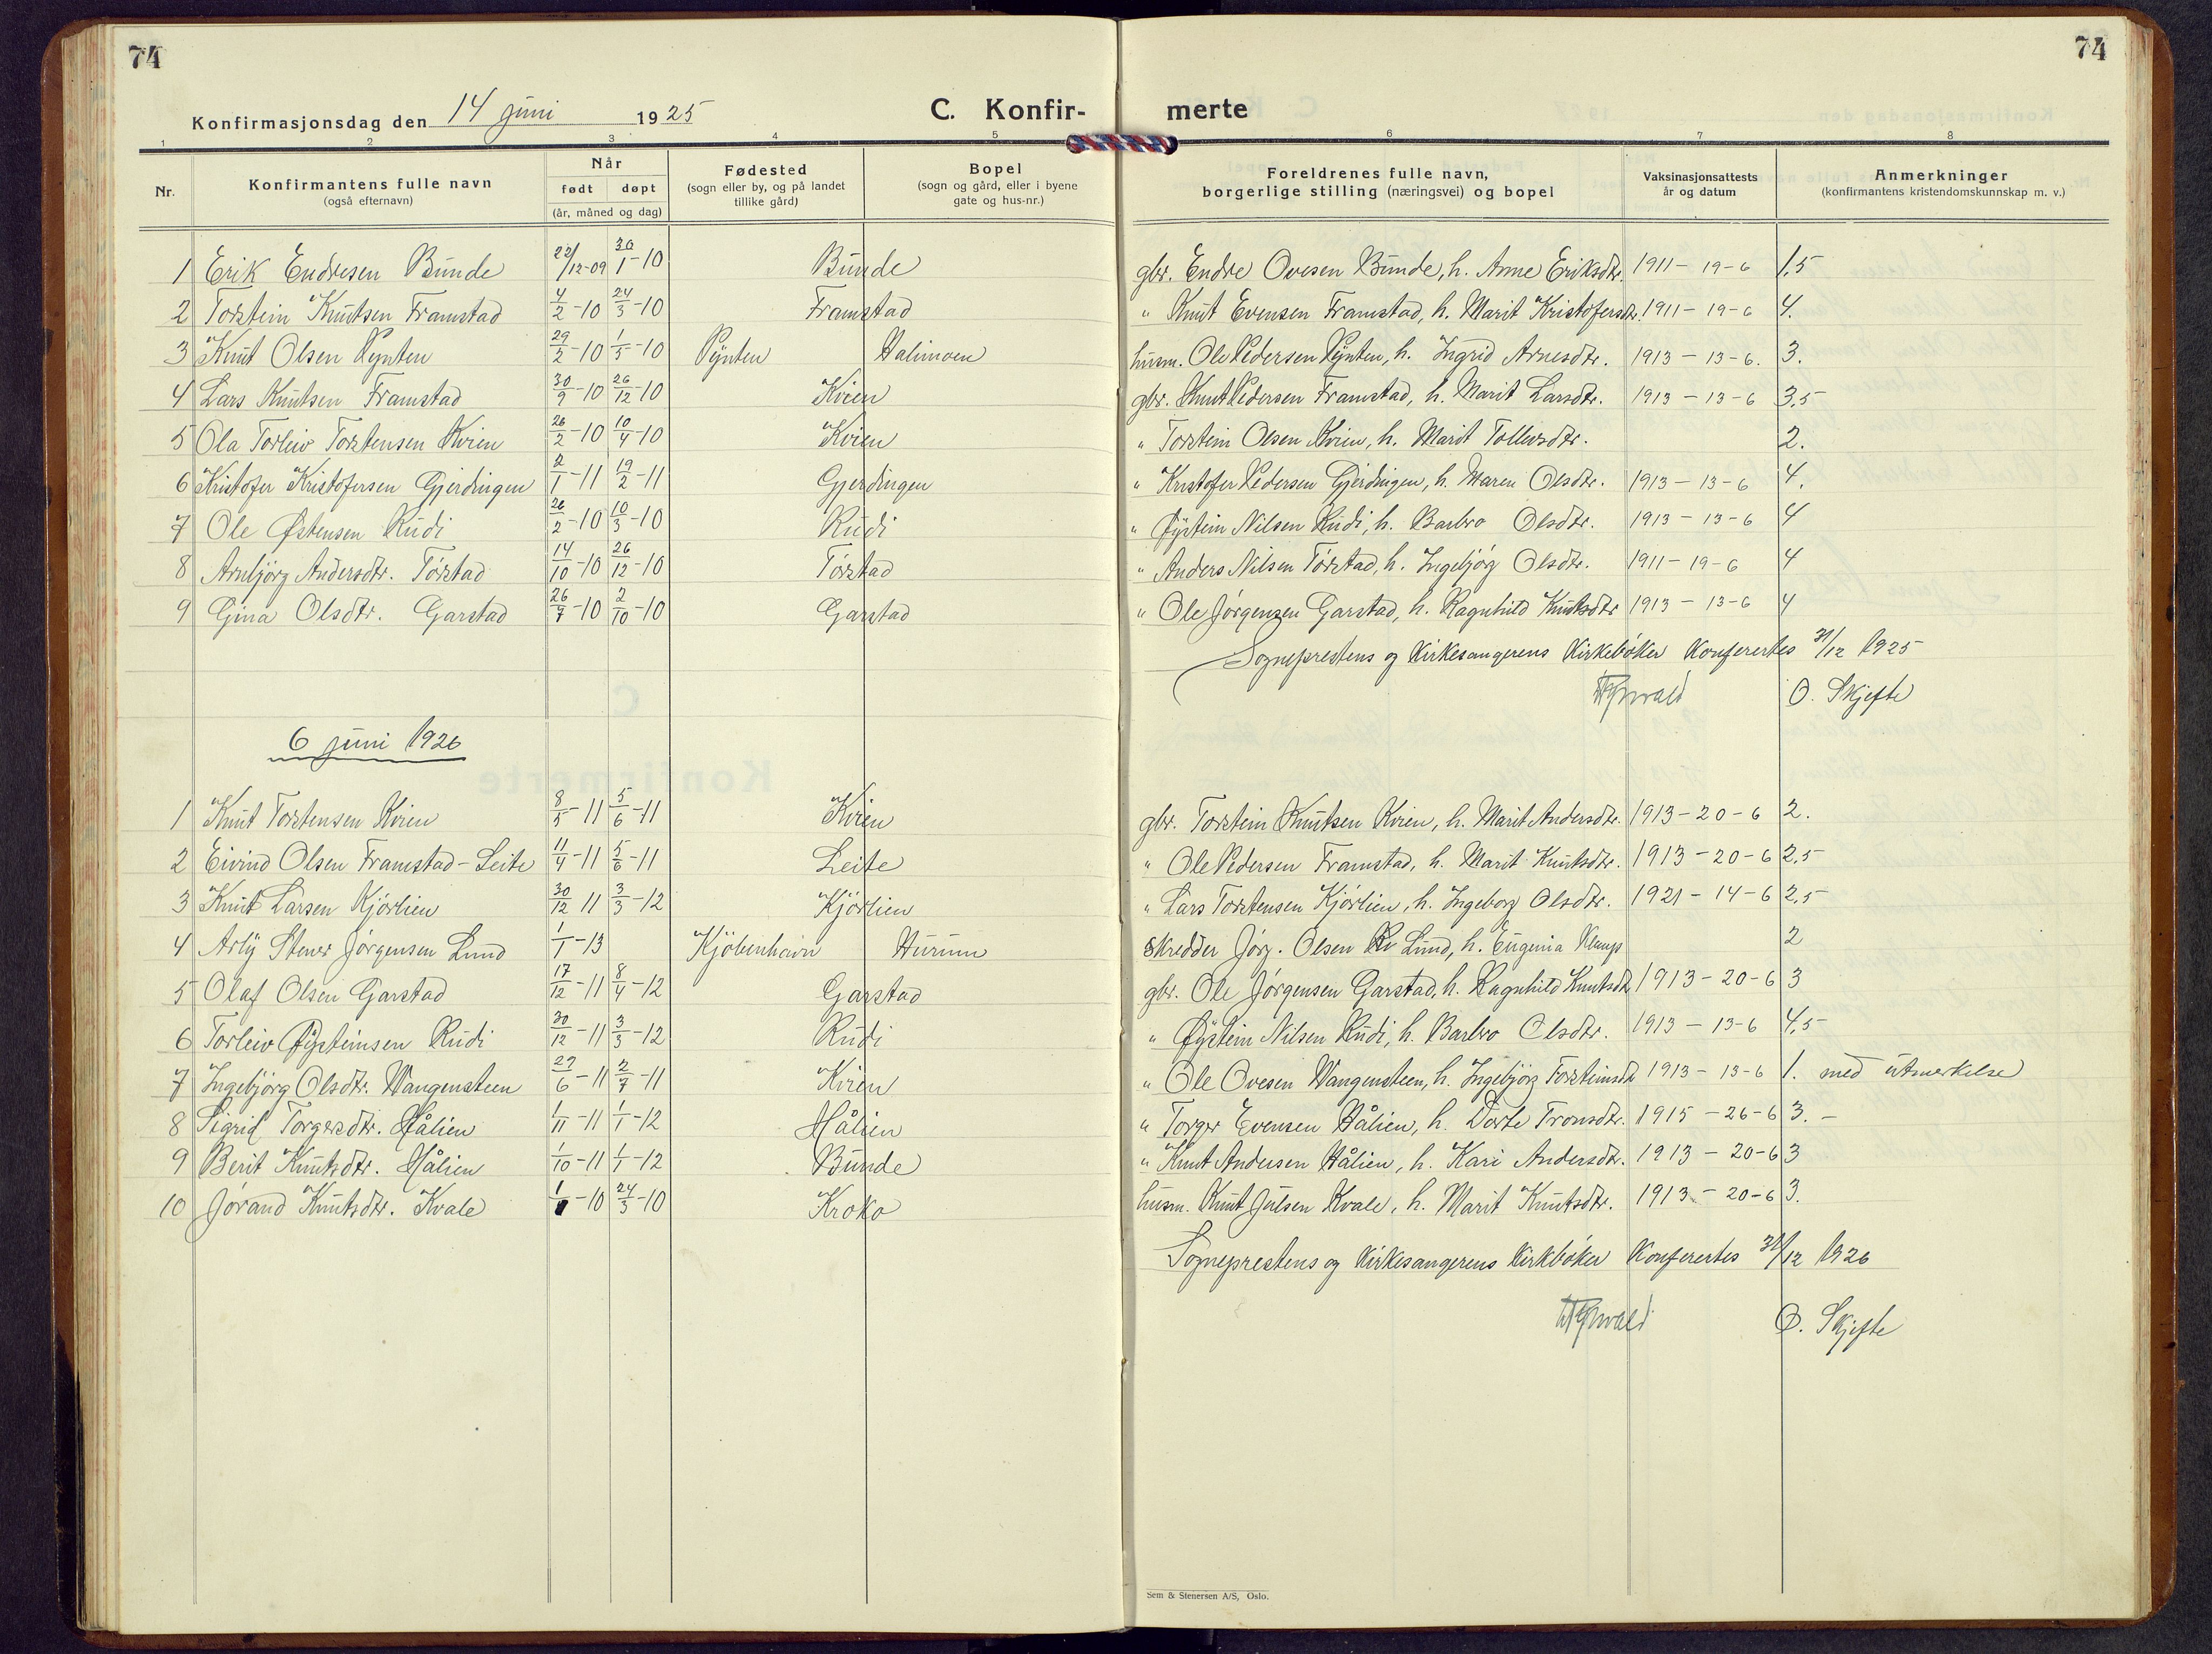 74
74
Konfirmasjonsdag den 14 juni 1925
C. Konfir- merte
1 2 3 4 5 6 7 8
Nr. Konfirmantens fulle navn (også efternavn) Når født døpt (år, måned og dag) Fødested (sogn eller by, og på landet tillike gård) Bopel (sogn og gård, eller i byene gate og hus-nr.) Foreldrenes fulle navn, borgerlige stilling (næringsvei) og bopel Vaksinasjonsattests år og datum Anmerkninger (konfirmantens kristendomskunnskap m. v.)
1 Erik Endresen Bunde 22/12-09 30/1-10 Bunde gbr. Endre Ovesen Bunde, h. Anne Eriksdtr. 1911-19-6 1,5
2 Torstein Knutsen Framstad 4/2-10 24/3-10 Framstad " Knut Evensen Framstad, h. Marit Kristofersdtr. 1911-19-6 4.
3 Knut Olsen Pynten 29/2-10 1/5-10 Pynten Halimoen husm. Ole Pedersen Pynten, h. Ingrid Arnesdtr. 1913-13-6. 3.
4 Lars Knutsen Framstad 30/9-10 26/12-10 Kvien gbr. Knut Pedersen Framstad, h. Marit Larsdtr. 1913-13-6 3,5
5 Ola Torleiv Torstensen Kvien 26/2-10 10/4-10 Kvien " Torstein Olsen Kvien, h. Marit Tollevsdtr. 2.
6 Kristofer Kristofersen Gjerdingen 2/1-11 19/2-11 Gjerdingen " Kristofer Pedersen Gjerdingen, h. Maren Olsdtr. 1913-13-6 4.
7 Ole Østensen Rudi 26/2-10 10/3-10 Rudi " Øystein Nilsen Rudi, h. Barbro Olsdtr. 1913-13-6 4
8 Arnbjörg Andersdtr. Törstad 14/10-10 26/12-10 Törstad " Anders Nilsen Törstad, h. Ingebjörg Olsdtr. 1911-19-6 4
9 Gina Olsdtr. Garstad 26/7-10 2/10-10 Garstad " Ole Jörgensen Garstad, h. Ragnhild Knutsdtr 1913-13-6 4
Sogneprestens og Kirkesangerens Kirkebøker Konferertes 31/12 1925
O. Skjefte
6 juni 1926
1 Knut Torstensen Kvien 8/5-11 5/6-11 Kvien gbr. Torstein Knutsen Kvien, h. Marit Andersdtr. 1913-20-6 2.
2 Eivind Olsen Framstad-Leite 11/4-11 5/6-11 Leite " Ole Pedersen Framstad, h. Marit Knutsdtr. 1913-20-6 2,5
3 Knut Larsen Kjörlien 30/12 11 3/3-12 Kjörlien " Lars Torstensen Kjörlien, h. Ingeborg Olsdtr. 1921-14-6 2,5
4 Arly Stener Jörgensen Lund 1/1-13 Kjöbenhavn Hurum Skredder Jörg. Olsen Lund, h. Eugenia 2
5 Olaf Olsen Garstad 17/12-11 8/4-12 Garstad gbr. Ole Jörgensen Garstad, h. Ragnhild Knutsdtr 1913-20-6 3
6 Torleiv Øysteinsen Rudi 30/12-11 3/3-12 Rudi " Øystein Nilsen Rudi, h. Barbro Olsdtr. 1913-13-6 4,5
7 Ingebjörg Olsdtr. Wangensteen 27/6-11 2/7-11 Kvien " Ole Ovesen Wangensteen, h. Ingebjörg Torsteinsdtr 1913-13-6 1. med utmerkelse
8 Sigrid Torgersdtr. Hålien 1/11-11 1/1-12 Hålien " Torger Evensen Hålien, h. Dorte Tronsdtr. 1915-26-6 3. -
9 Berit Knutsdtr. Hålien 1/10-11 1/1-12 Bunde " Knut Andersen Hålien, h. Kari Andersdtr. 1913-20-6 3
10 Jörand Knutsdtr. Kvale -10 24/3-10 Kroko husm. Knut Julsen Kvale, h. Marit Knutsdtr. 1913-20-6 3.
Sogneprestens og Kirkesangerens Kirkbøker Konferertes 31/12 1926
O. Skjefte
Sem & Stenersen A/S, Oslo.